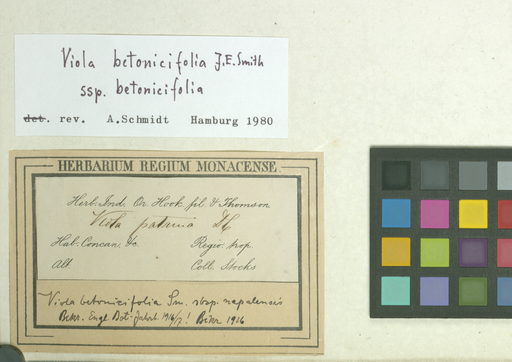 Viola betonicifolia J.E.Smith
ssp. betonicifolia
det. rev. A.Schmidt Hamburg 1980
HERBARIUM REGIUM MONACENSE.
Herb. Ind. Or. Hook. fil. & Thomson
Viola patrinia
Hab. Concan, &c. Regio trop.
Alt. Coll. Stocks
Viola betonicifolia Sm. sbsp. nepalensis
Bckr. Engl. Bot. Jahrb. 1916/17! Bckr 1916